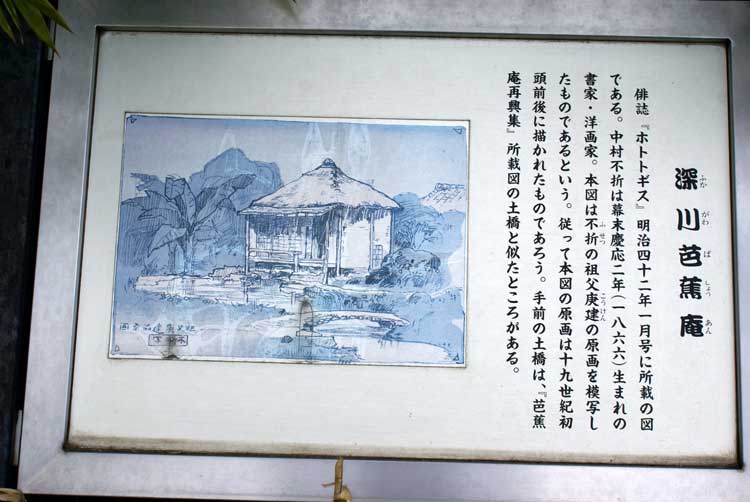 深川芭蕉庵
ふか がわ ば しょう あん
俳誌『ホトトギス』明治四十二年一月号に所載の図
である。中村不折は幕末慶応二年(一八六六)生まれの
書家・洋画家。本図は不折の祖父庚建の原画を模写し
ふせつ こうけん
たものであるという。従って本図の原画は十九世紀初
頭前後に描かれたものであろう。手前の土橋は、『芭蕉
庵再興集』所載図の土橋と似たところがある。